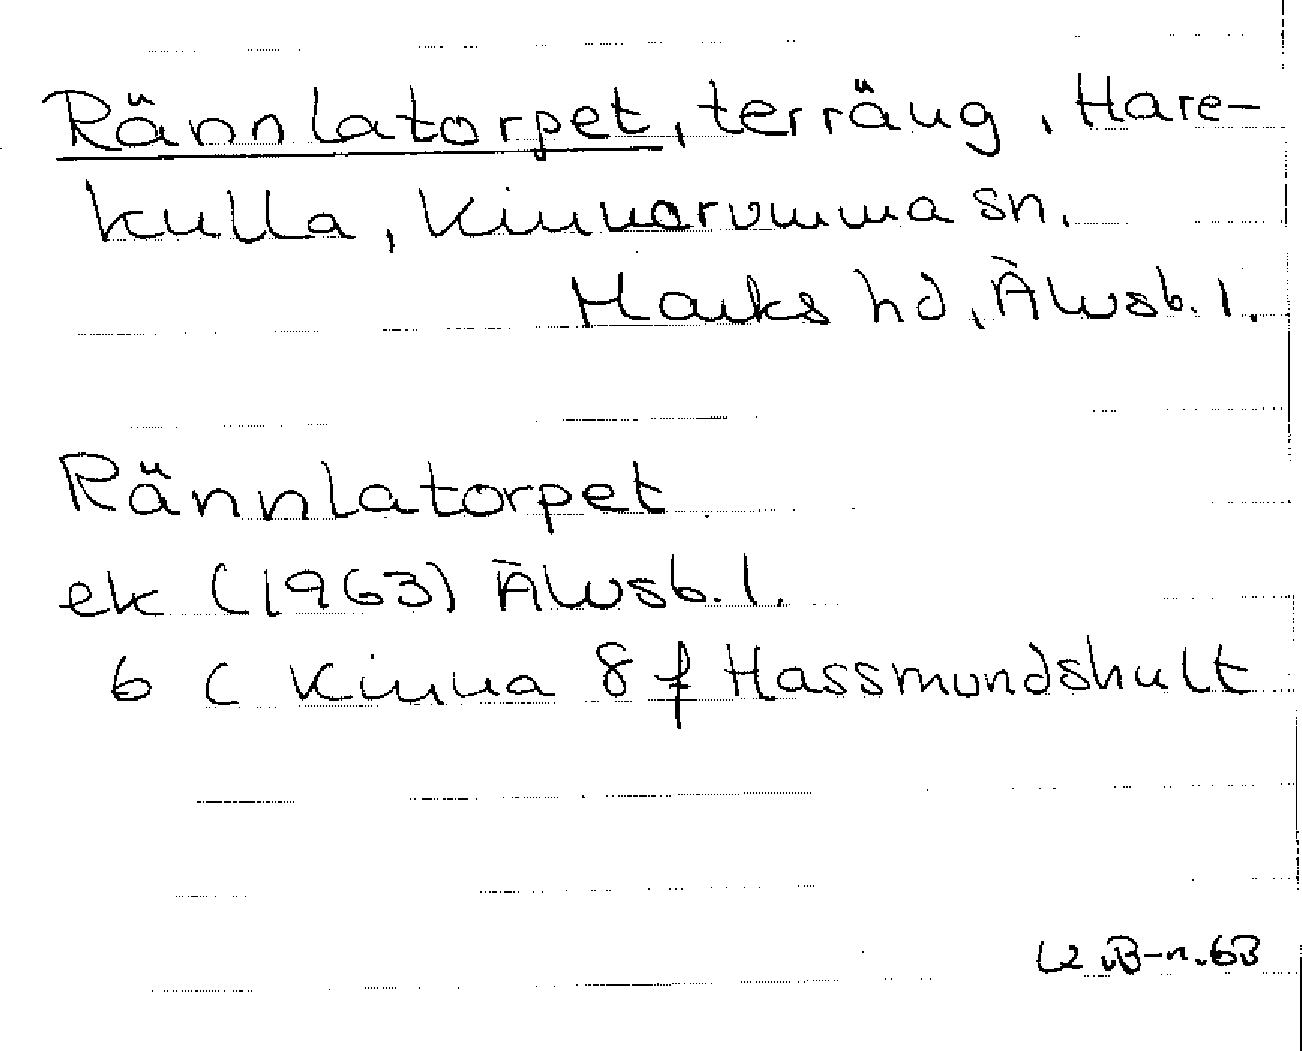 Rännlatorpet, terräng, Hare-
kulla, Kinnarumma sn.
Marks hd, Älvsb. l.
Rännlatorpet
ek (1963) Älvsb. l.
6 C Kinna 8 f Hassmundshult